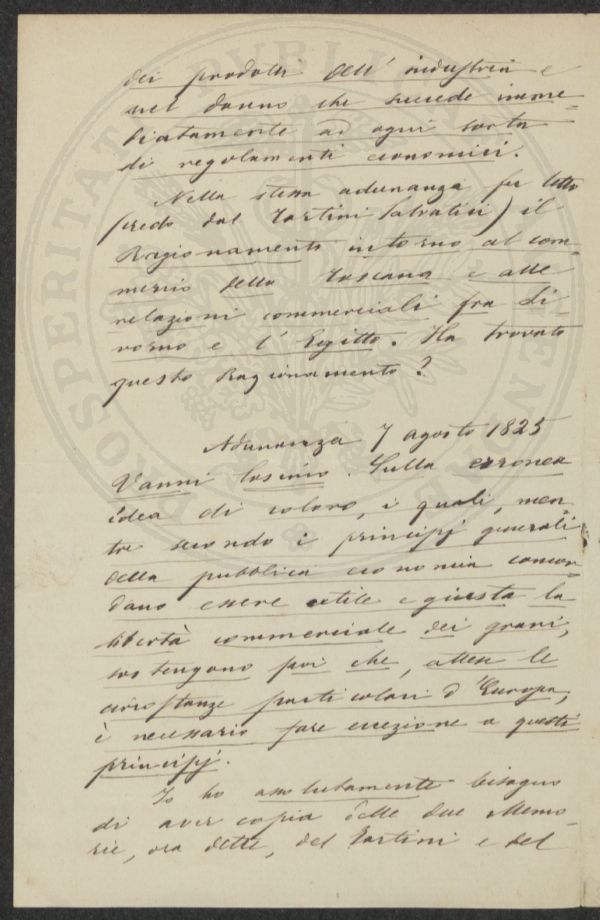 dei prodotti dell' industria e
nel danno che succede imme-
diatamente ad ogni sorta
di regolamenti economici.
Nella stessa adunanza fu letto
(credo dal Tartini Salvatici) il
Ragionamento intorno al com-
mercio della Toscana e alle
relazioni commerciali fra Li-
vorno e l' Egitto. Ha trovato
questo Ragionamento?
Adunanza 7 agosto 1825
Vanni Cosimo. Sulla erronea
idea di coloro, i quali, men
tre secondo i principj generali
della pubblica economia concor-
dano essere utile e giusta la
libertà commerciale dei grani,
sostengono poi che, attese le
circostanze particolari d'Europa,
è necessario fare eccezione a questi
principj.
Io ho assolutamente bisogno
di aver copia delle due Memo-
rie, ora dette, del Tartini e del
PROSPERITATI PVBLICAE